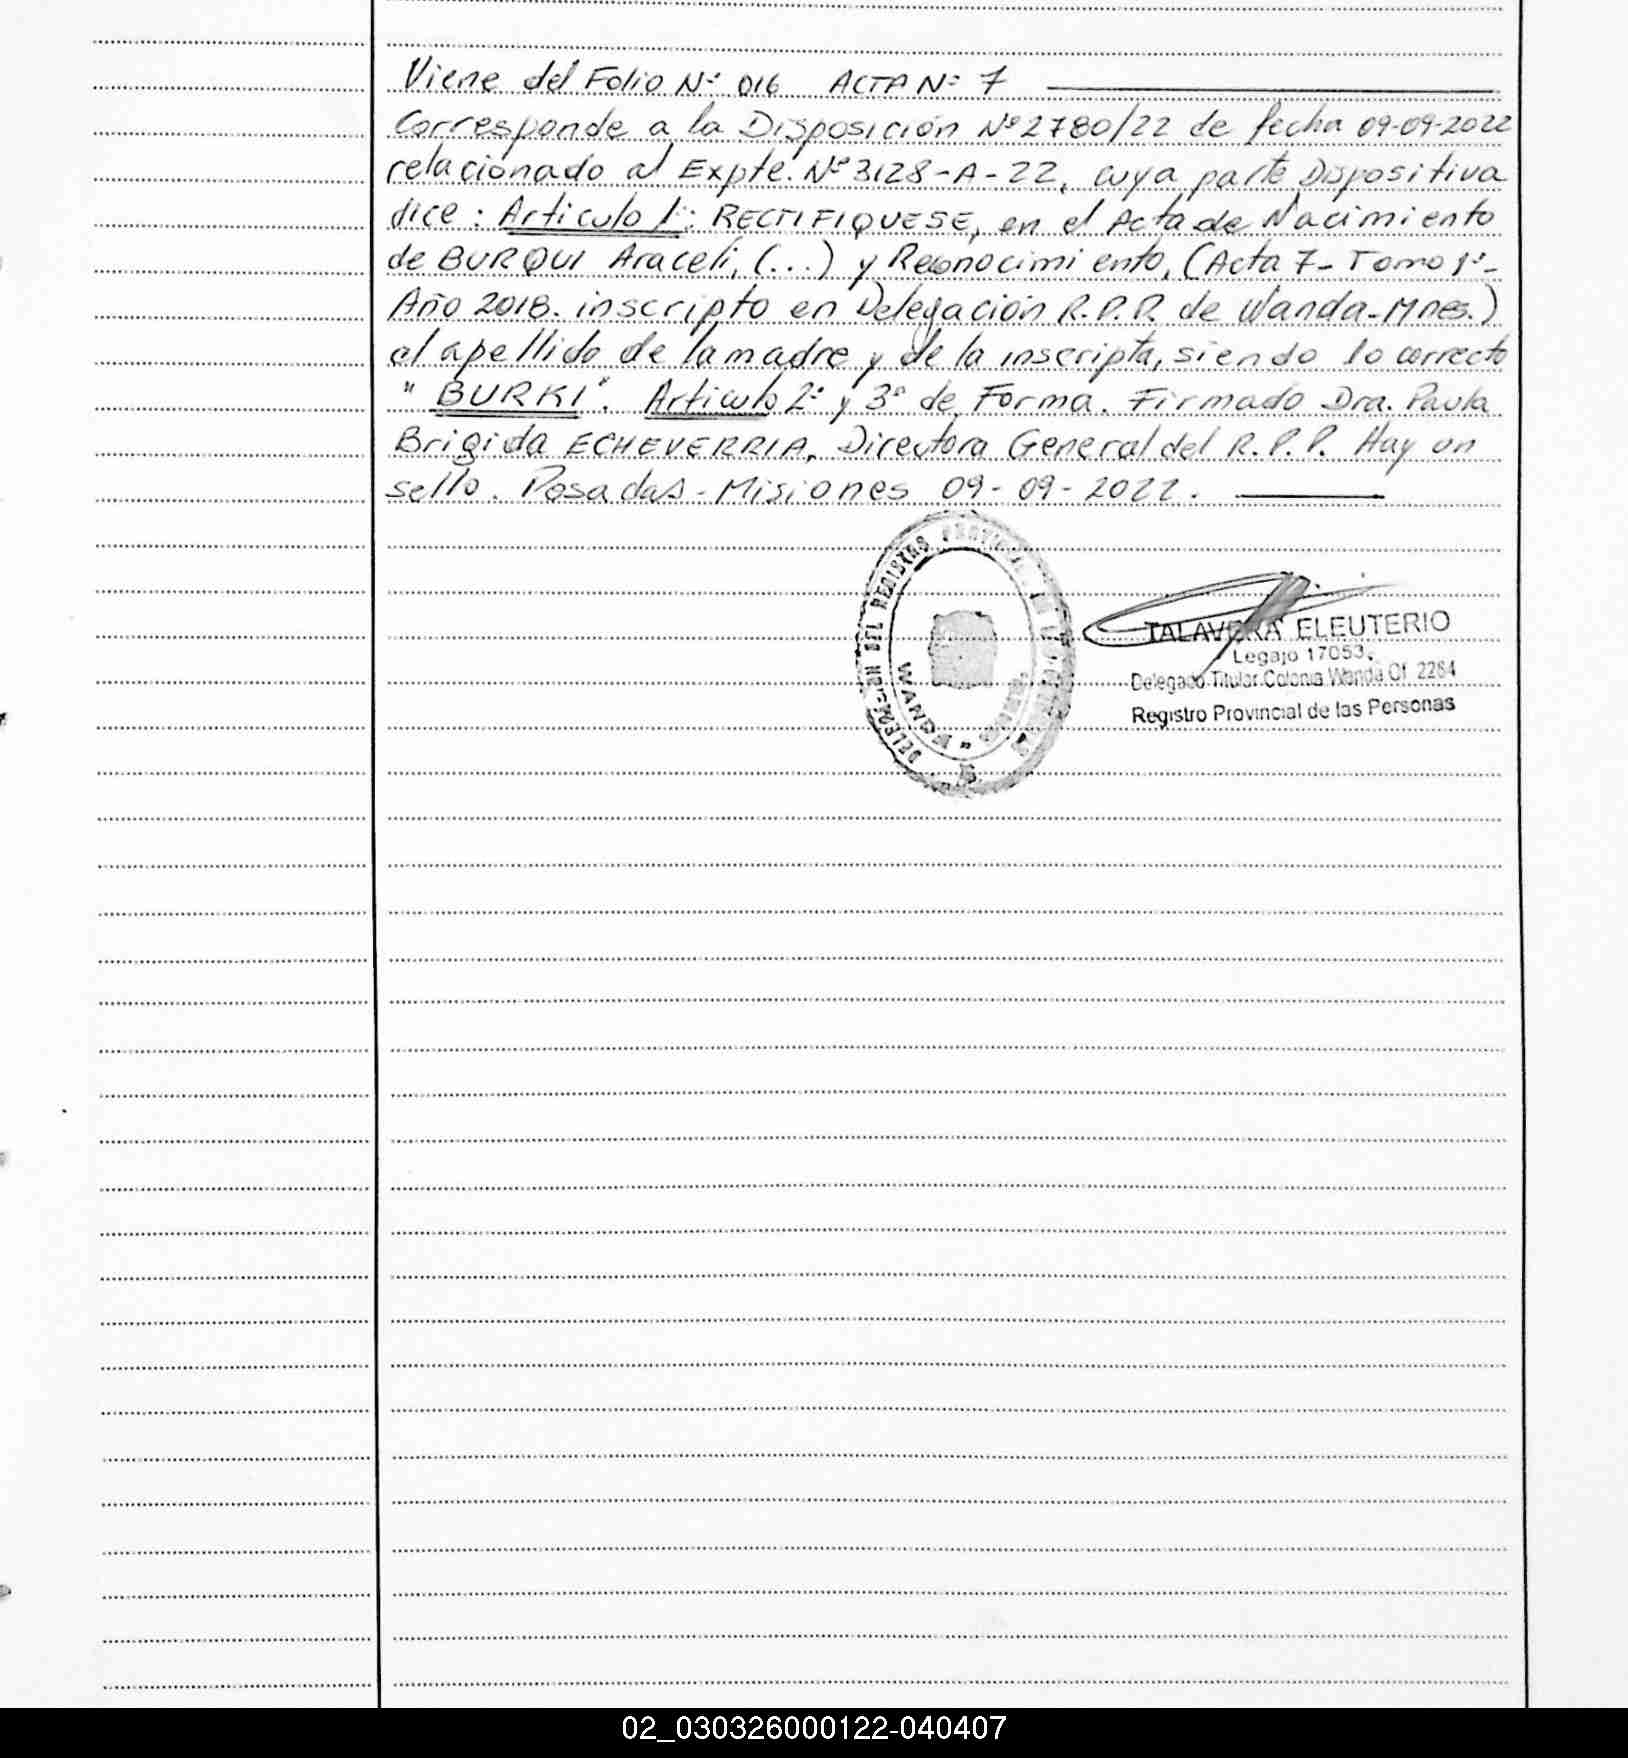 Viene del Folio Nº 016 ACTA Nº 7
Corresponde a la Disposición Nº 2780/22 de fecha 09-09-2022
relacionado al Expte. Nº 3128-A-22, cuya parte Dispositiva
dice: Articulo 1º: RECTIFIQUESE, en el Acta de Nacimiento
de BURQUI Araceli, (...) y Reconocimiento, (Acta 7- Tomo 1º-
Año 2018. inscripto en Delegación R.P.P. de Wanda-Mnes.)
el apellido de la madre y de la inscripta, siendo lo correcto
"BURKI". Articulo 2º y 3º de Forma. Firmado Dra. Paula
Brigida ECHEVERRIA, Directora General del R.P.P. Hay un
sello. Posadas-Misiones 09-09-2022.
DELEGACION DEL REGISTRO PROVINCIAL DE LAS PERSONAS
WANDA
TALAVERA ELEUTERIO
Legajo 17053
Delegado Titular Colonia Wanda Of. 2264
Registro Provincial de las Personas
02_030326000122-040407